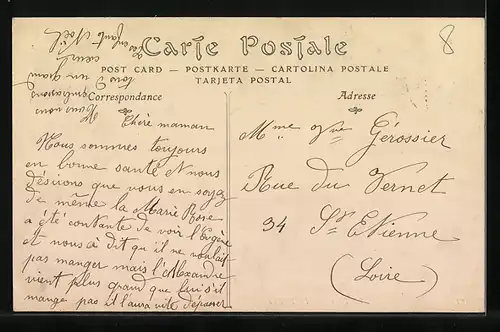 8
Carte Postale
POST CARD — POSTKARTE — CARTOLINA POSTALE
TARJETA POSTAL
Correspondance
Adresse
Chère maman
Nous sommes toujours
en bonne santé et nous
désirons que vous en soyez
de même la Marie Rose
a été contante de voir l'Eugène
et nous a dit qu'il ne voulait
pas manger mais l'Alexandre
vient plus grand que lui s'il
mange pas il l'aura vite dépassé
Nous vous
embrassons
tous d'un grand
cœur
Mme Vve Gérossier
Rue du Vernet
34 St Etienne
(Loire)